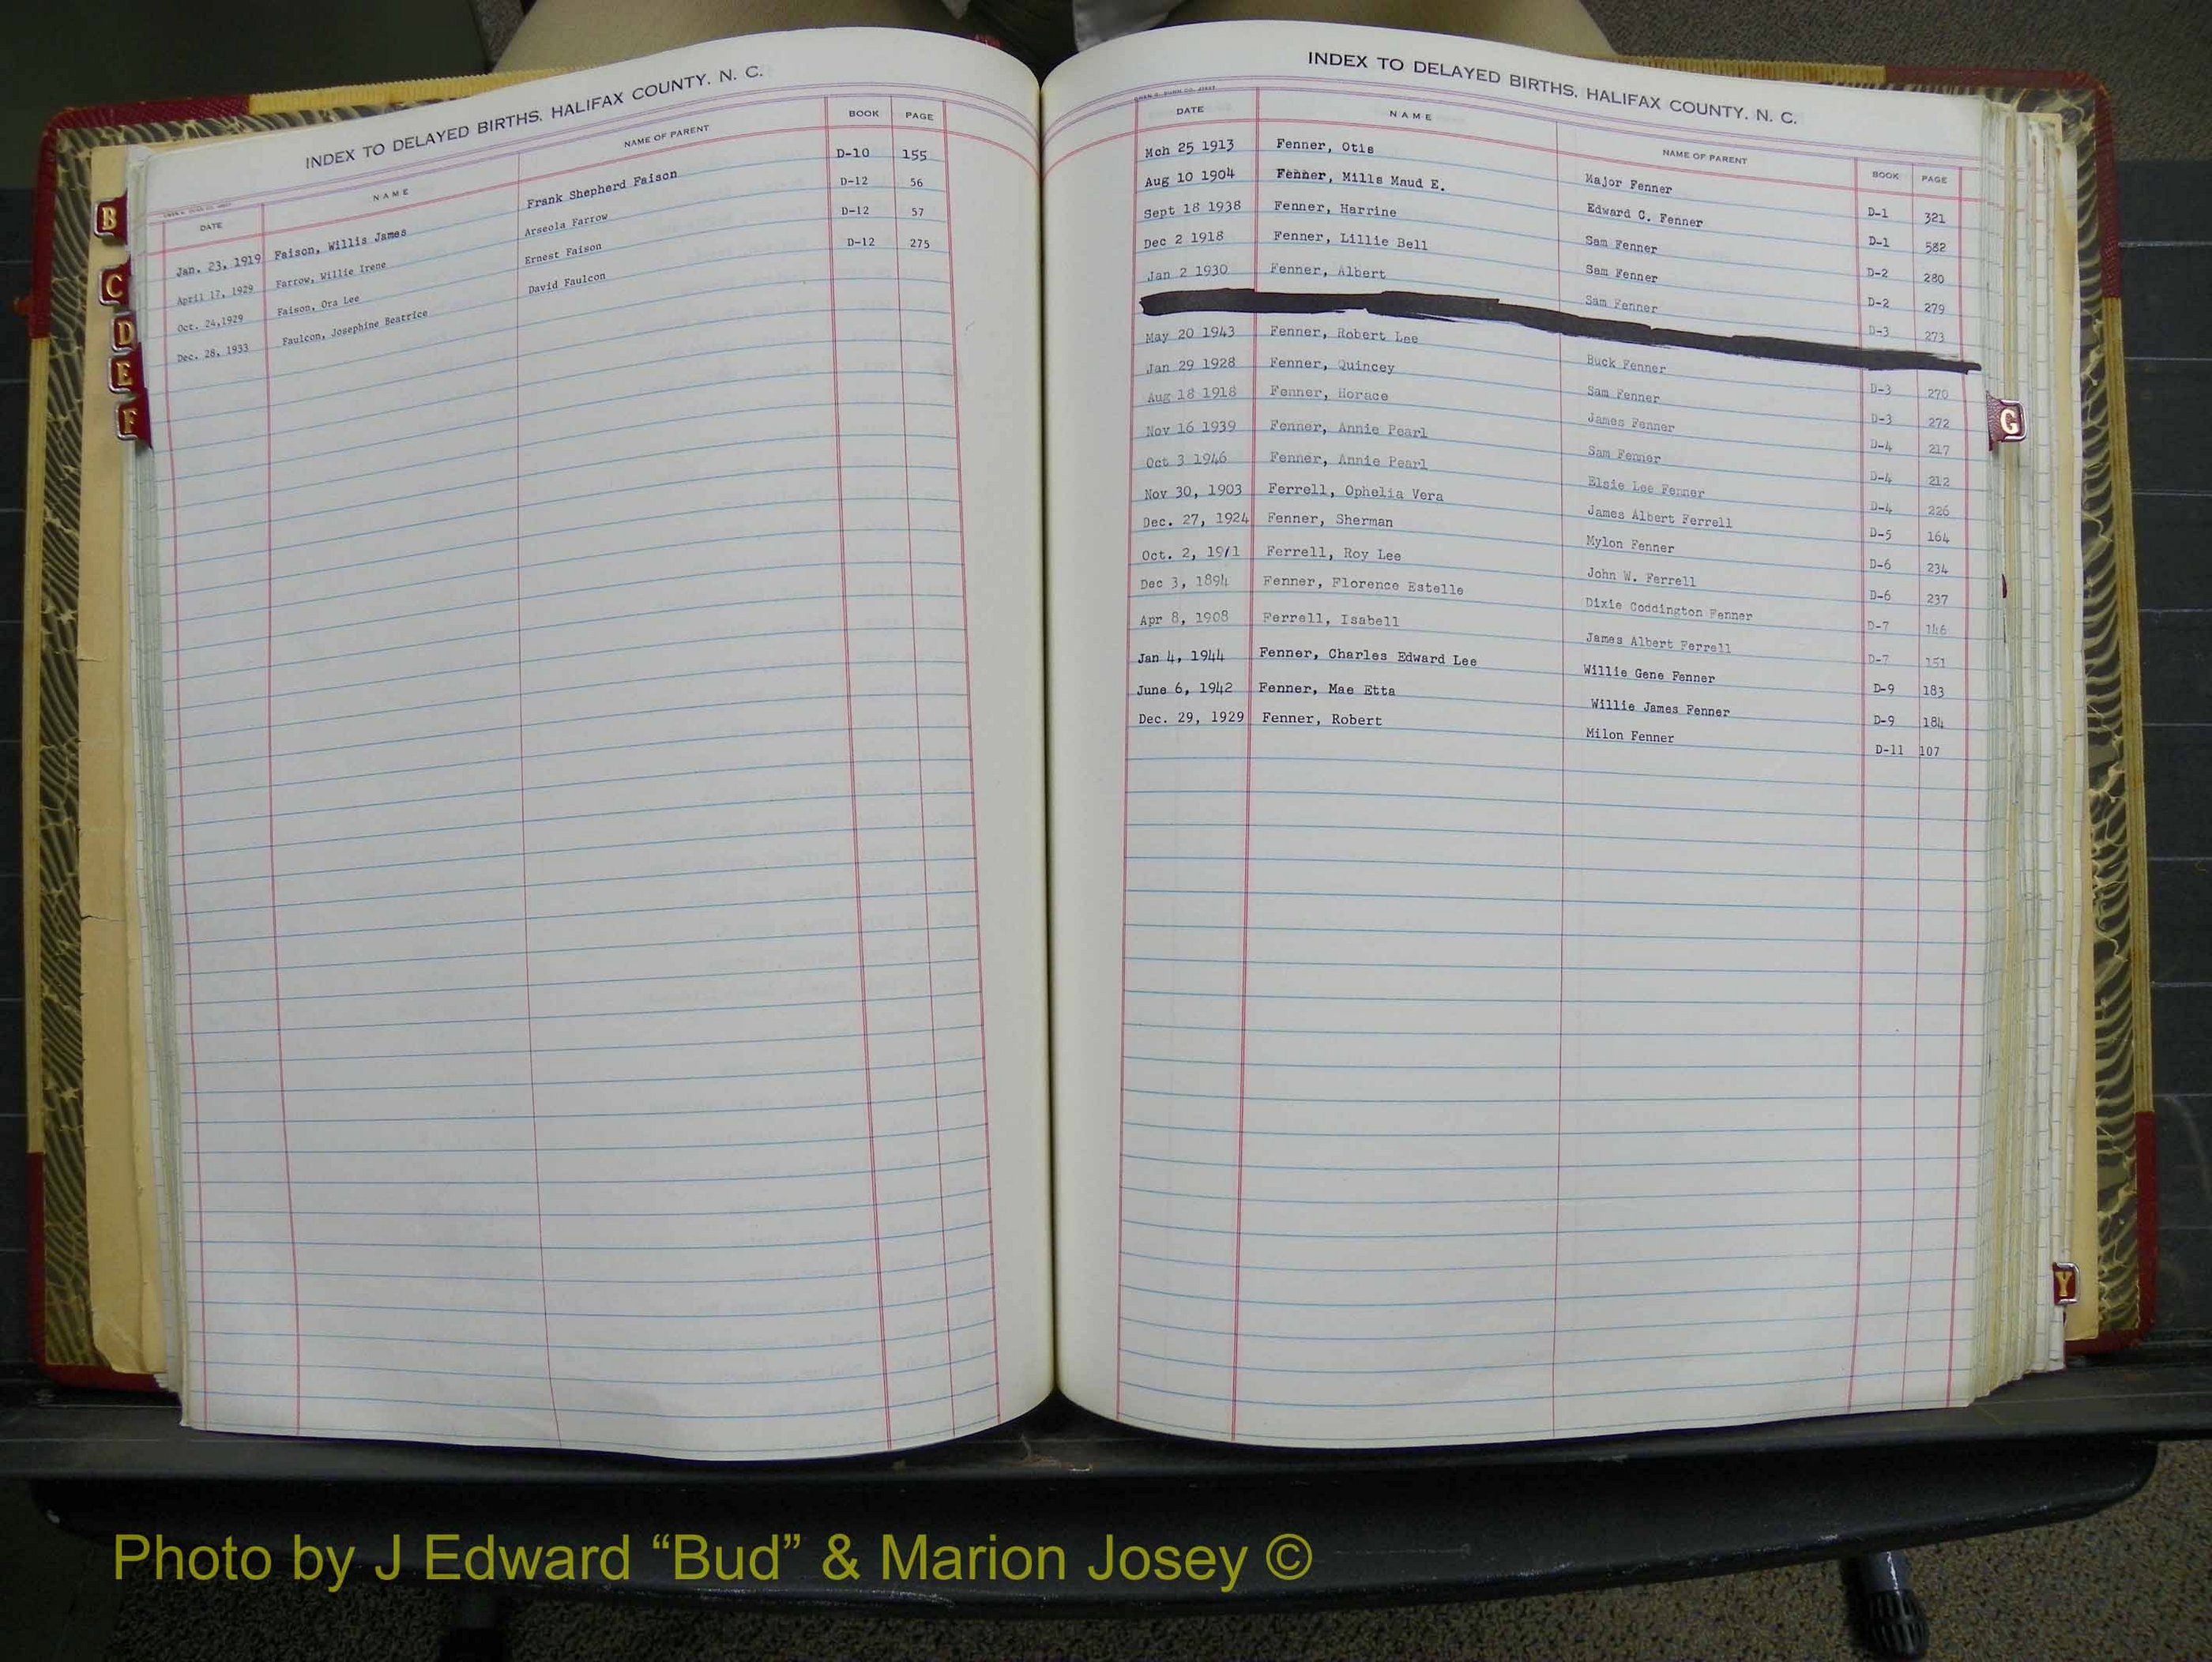 INDEX TO DELAYED BIRTHS. HALIFAX COUNTY. N. C.
DATE NAME NAME OF PARENT BOOK PAGE
Jan. 23, 1919 Faison, Willis James Frank Shepherd Faison D-10 155
April 17, 1929 Farrow, Willie Irene Arseola Farrow D-12 56
Oct. 24,1929 Faison, Ora Lee Ernest Faison D-12 57
Dec. 28, 1933 Faulcon, Josephine Beatrice David Faulcon D-12 275
B
C
D
E
F
INDEX TO DELAYED BIRTHS. HALIFAX COUNTY. N. C.
DATE NAME NAME OF PARENT BOOK PAGE
Mch 25 1913 Fenner, Otis Major Fenner D-1 321
Aug 10 1904 Fenner, Mills Maud E. Edward C. Fenner D-1 582
Sept 18 1938 Fenner, Harrine Sam Fenner D-2 280
Dec 2 1918 Fenner, Lillie Bell Sam Fenner D-2 279
Jan 2 1930 Fenner, Albert Sam Fenner D-3 273
May 20 1943 Fenner, Robert Lee Buck Fenner D-3 270
Jan 29 1928 Fenner, Quincey Sam Fenner D-3 272
Aug 18 1918 Fenner, Horace James Fenner D-4 217
Nov 16 1939 Fenner, Annie Pearl Sam Fenner D-4 212
Oct 3 1946 Fenner, Annie Pearl Elsie Lee Fenner D-4 226
Nov 30, 1903 Ferrell, Ophelia Vera James Albert Ferrell D-5 164
Dec. 27, 1924 Fenner, Sherman Mylon Fenner D-6 234
Oct. 2, Ferrell, Roy Lee John W. Ferrell D-6 237
Dec 3, 1894 Fenner, Florence Estelle Dixie Coddington Fenner D-7 146
Apr 8, 1908 Ferrell, Isabell James Albert Ferrell D-7 151
Jan 4, 1944 Fenner, Charles Edward Lee Willie Gene Fenner D-9 183
June 6, 1942 Fenner, Mae Etta Willie James Fenner D-9 184
Dec. 29, 1929 Fenner, Robert Milon Fenner D-11 107
G
Y
Photo by J Edward “Bud” & Marion Josey ©